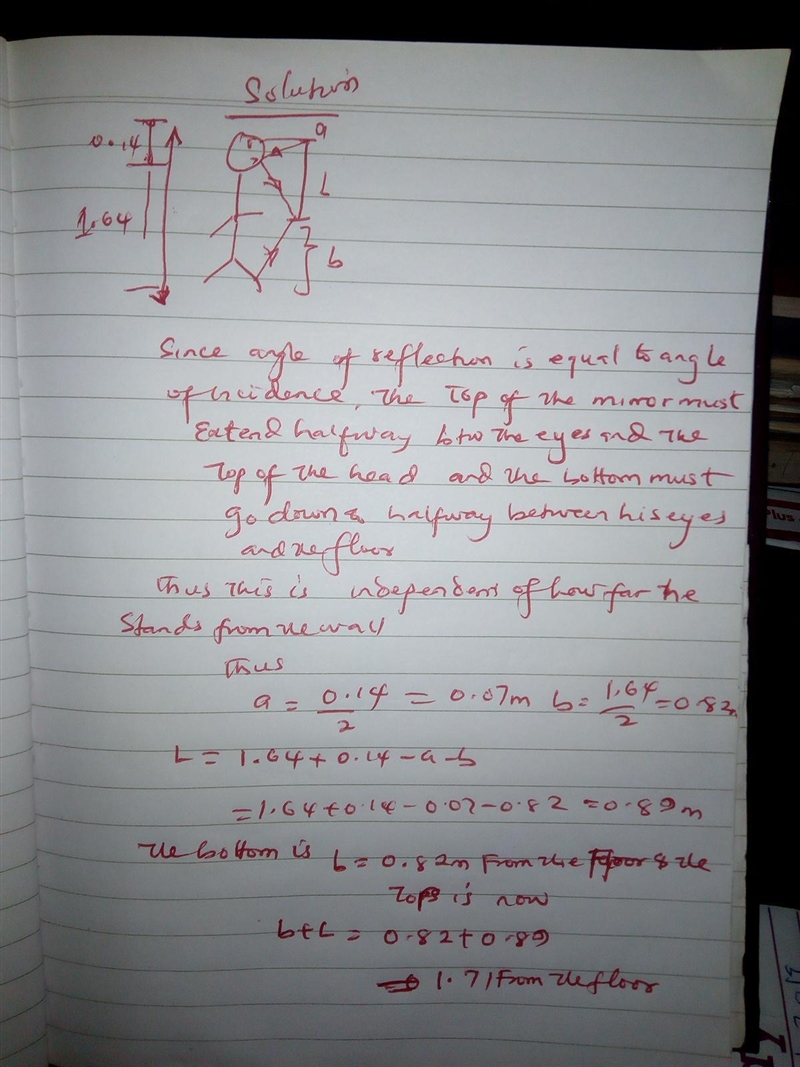 Solution
0.14
a
L
1.64
b
Since angle of reflection is equal to angle
of incidence, the Top of the mirror must
Extend halfway btw the eyes and the
Top of the head and the bottom must
go down to halfway between his eyes
and the floor
Thus this is independent of how far he
Stands from the wall
Thus
a = 0.14/2 = 0.07m b = 1.64/2 = 0.82m
L = 1.64 + 0.14 - a - b
= 1.64 + 0.14 - 0.07 - 0.82 = 0.89m
The bottom is b = 0.82m From the floor & the
Top is now
b+L = 0.82 + 0.89
1.71 From the floor
plus